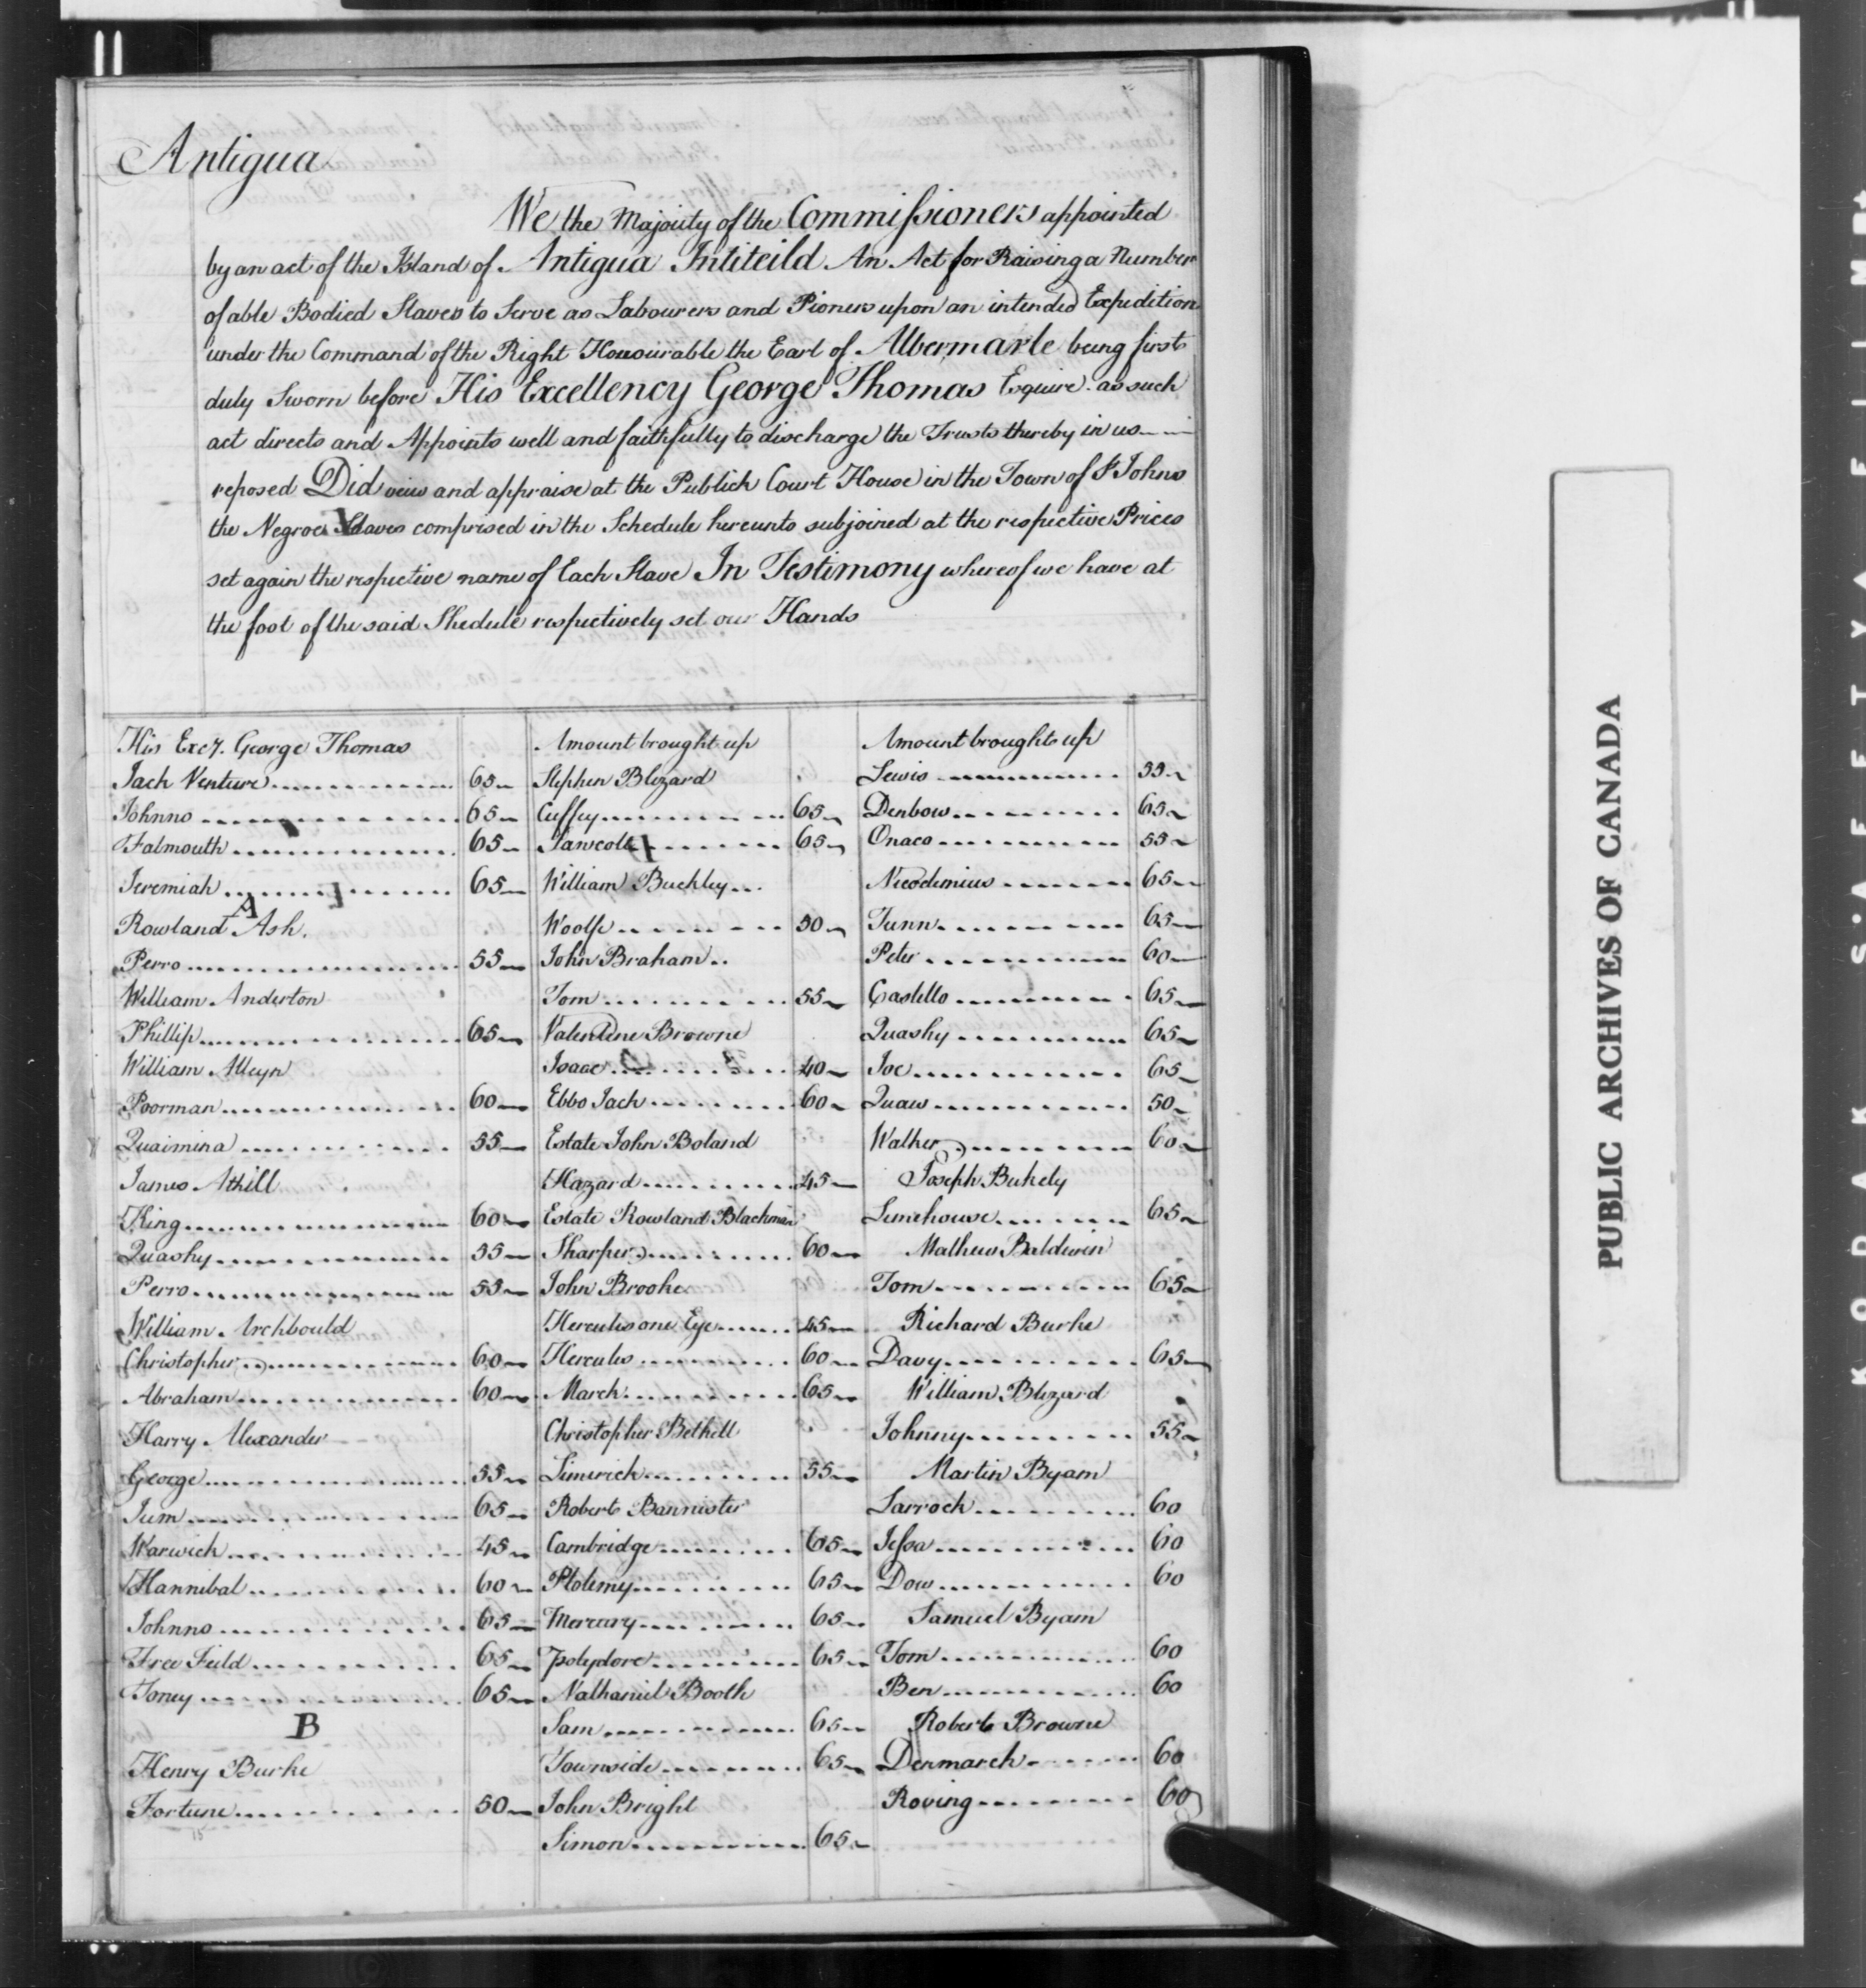 Antigua
We the Majority of the Commissioners appointed
by an act of the Island of Antigua Intiteild An Act for Raising a Number
of able Bodied Slaves to Serve as Labourers and Pioners upon an intended Expedition
under the Command of the Right Honourable the Earl of Albermarle being first
duly Sworn before His Excellency George Thomas Esquire as such
act directs and Appoints well and faithfully to discharge the Trusts thereby in us
reposed Did veiw and appraise at the Publick Court House in the Town of St Johns
the Negroe Slaves comprised in the Schedule hereunto subjoined at the respective Prices
set again the respective name of Each Slave In Testimony whereof we have at
the foot of the said Shedule respectively set our Hands
His Excy. George Thomas
Jack Venture 65
Johnno 65
Falmouth 65
Jeremiah 65
A
Rowland Ash.
Perro 55
William Anderton
Phillip 65
William Alleyn
Poorman 60
Quaimina 55
James Athill
King 60
Quashy 55
Perro 55
William Archbould
Christopher 60
Abraham 60
Harry Alexander
George 55
Jum 65
Warwick 45
Hannibal 60
Johnno 65
Free Feild 65
Toney 65
B
Henry Burke
Fortune 50
15
Amount brought up
Stephen Blizard
Cuffey 65
65
William Buckley
Woolfe 50
John Braham
Tom 55
Valentine Browne
Isaac 40
Ebbo Jack 60
Estate John Boland
Hazard 45
Estate Rowland Blackman
Sharper 60
John Brooke
Hercules one Eye 45
Hercules 60
March 65
Christopher Bethell
Limerick 55
Robert Bannister
Cambridge 65
Ptolemy 65
Mercury 65
Polydore 65
Nathaniel Booth
Sam 65
Townside 65
John Bright
Simon 65
Amount brought up
Lewis 55
Denbow 65
Onaco 55
Necodemius 65
Tunn 65
Peter 60
Castello 65
Quashy 65
Joe 65
Quaw 50
Walker 60
Joseph Bukely
Limehouse 65
Mathew Baldwin
Tom 65
Richard Burke
Davy 65
William Blizard
Johnny 55
Martin Byam
Larrock 60
Jessa 60
Dow 60
Samuel Byam
Tom 60
Ben 60
Robert Browne
Denmarck 60
Roving 60
PUBLIC ARCHIVES OF CANADA